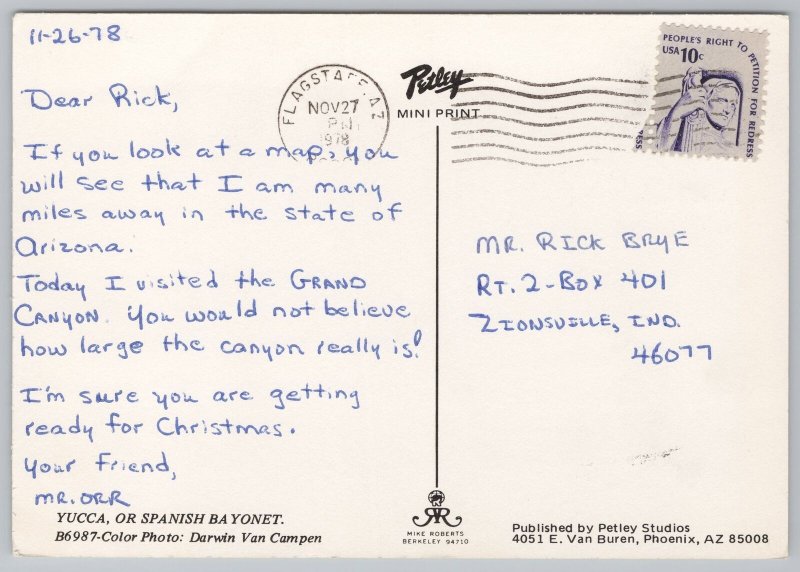 11-26-78
Dear Rick,
If you look at a map, you
will see that I am many
miles away in the state of
Arizona.
Today I visited the GRAND
CANYON. You would not believe
how large the canyon really is!
I'm sure you are getting
ready for Christmas.
Your friend,
MR. ORR
YUCCA, OR SPANISH BAYONET.
B6987-Color Photo: Darwin Van Campen
FLAGSTAFF, AZ
NOV 27
PM
1978
Petley
MINI PRINT
PEOPLE'S RIGHT TO PETITION FOR REDRESS
USA 10c
MR. RICK BRYE
RT. 2-BOX 401
ZIONSVILLE, IND.
46077
MIKE ROBERTS
BERKELEY 94710
Published by Petley Studios
4051 E. Van Buren, Phoenix, AZ 85008